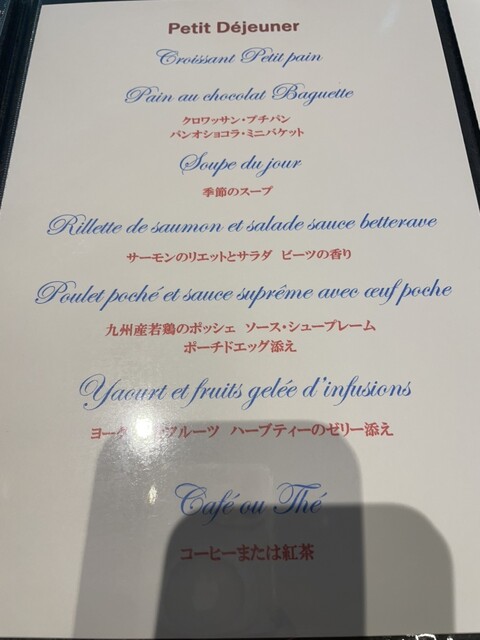 Petit Déjeuner
Croissant Petit pain
Pain au chocolat Baguette
クロワッサン・プチパン
パンオショコラ・ミニバケット
Soupe du jour
季節のスープ
Rillette de saumon et salade sauce betterave
サーモンのリエットとサラダ ビーツの香り
Poulet poché et sauce suprême avec œuf poche
九州産若鶏のポッシェ ソース・シュープレーム
ポーチドエッグ添え
Yaourt et fruits gelée d'infusions
フルーツ ハーブティーのゼリー添え
Café ou Thé
コーヒーまたは紅茶